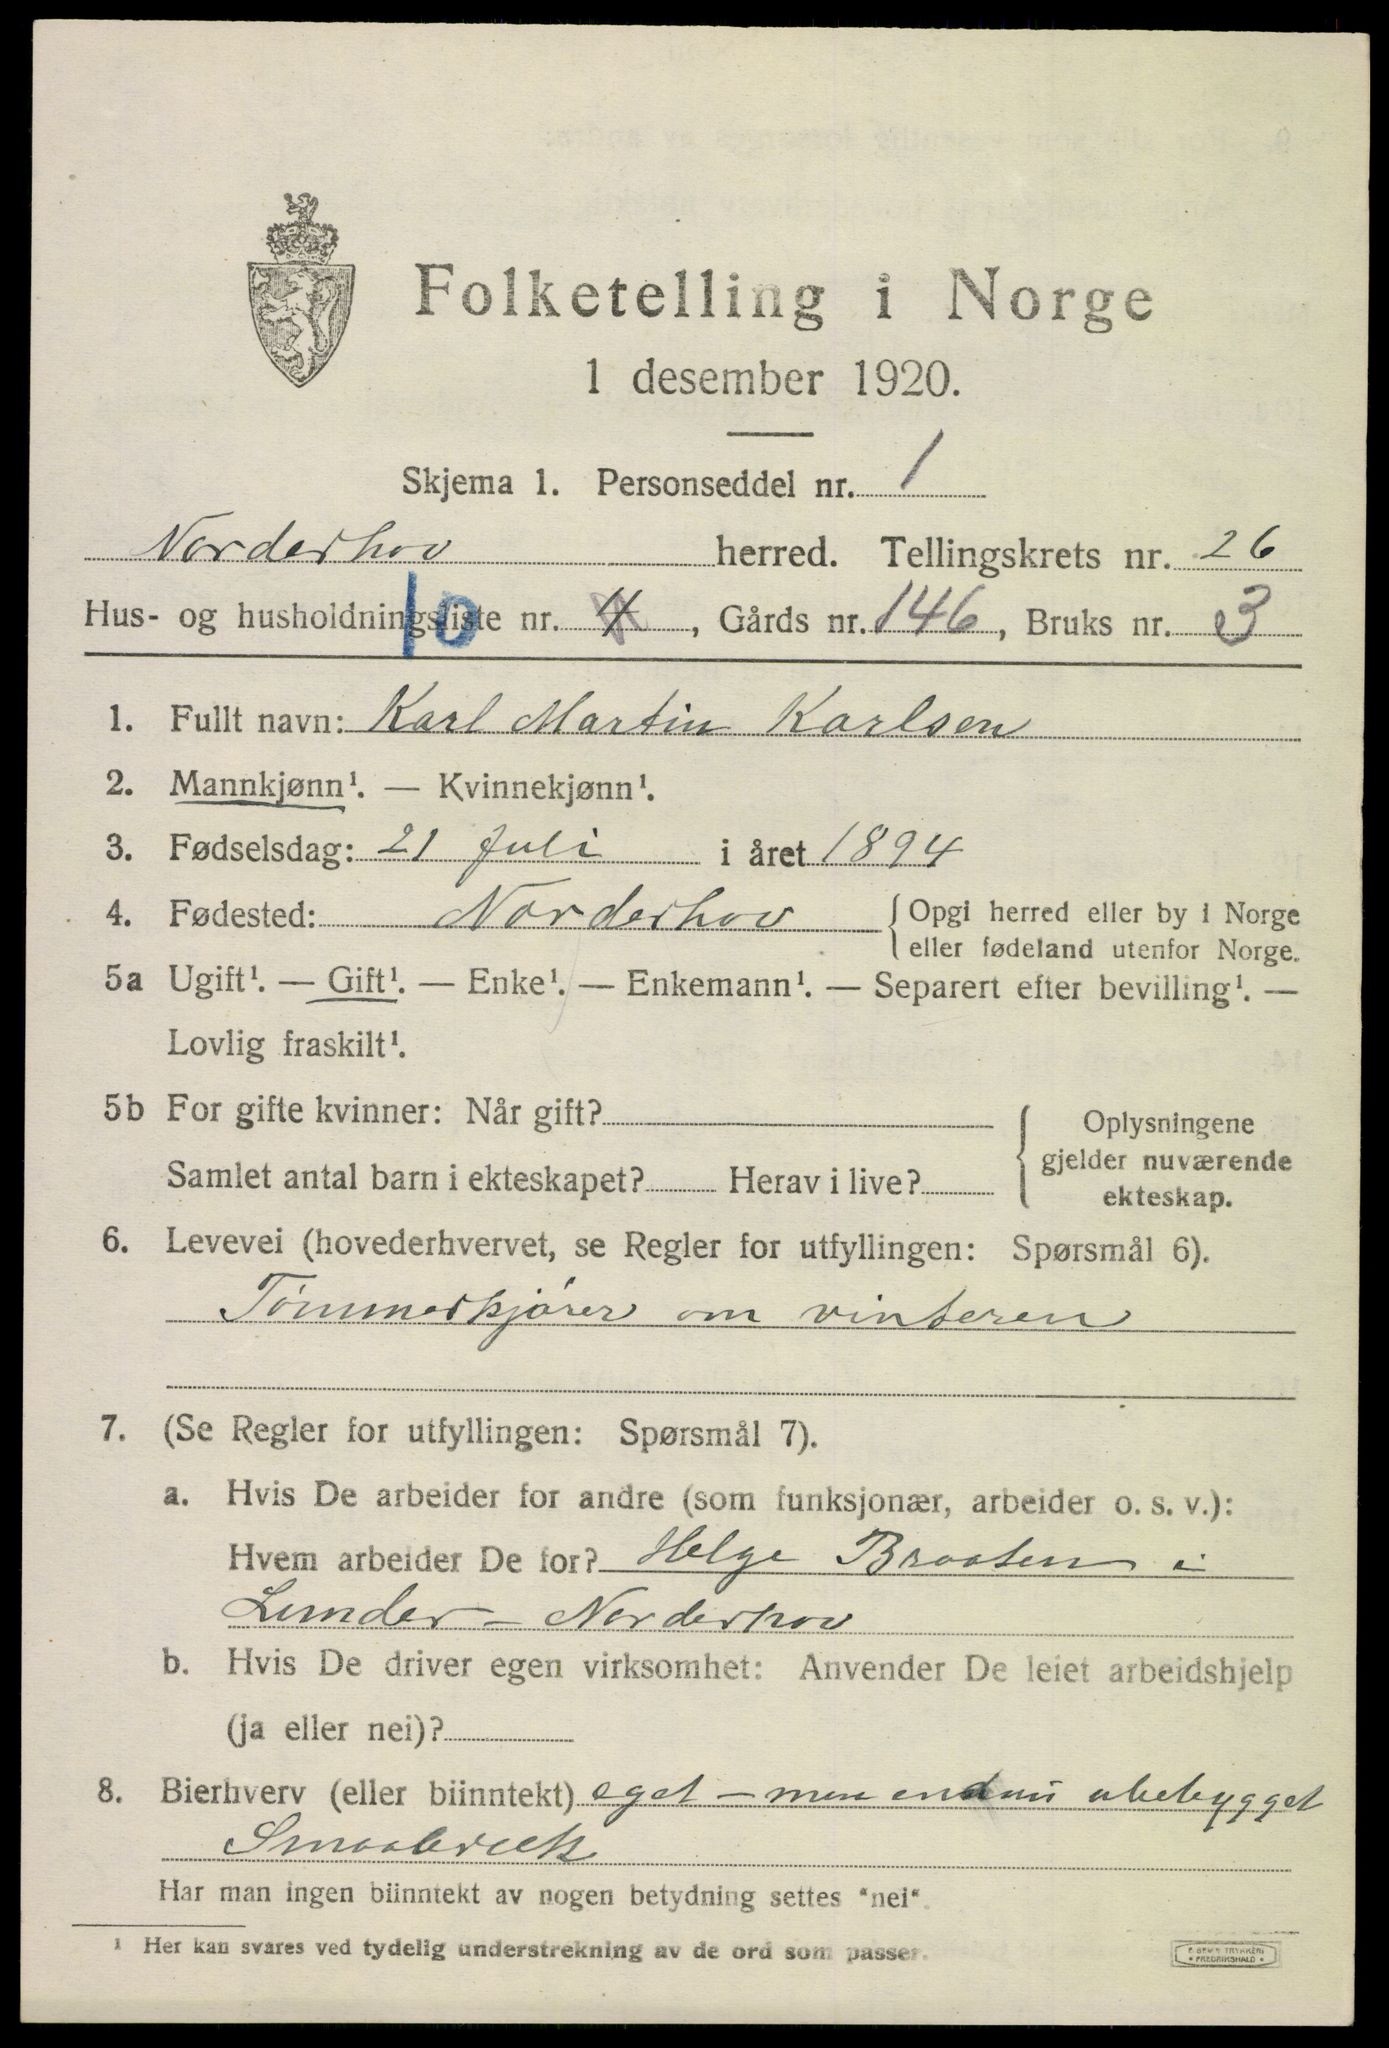 Folketelling i Norge
1 desember 1920.
Skjema 1. Personseddel nr. 1
Norderhov herred. Tellingskrets nr. 26
Hus- og husholdningsliste nr. 4 10, Gårds nr. 146, Bruks nr. 3
1. Fullt navn: Karl Martin Karlsen
2. Mannkjønn¹. — Kvinnekjønn¹.
3. Fødselsdag: 21 Juli i året 1894
4. Fødested: Norderhov {Opgi herred eller by i Norge
eller fødeland utenfor Norge.
5a Ugift¹. — Gift¹. — Enke¹. — Enkemann¹. — Separert efter bevilling¹. —
Lovlig fraskilt¹.
5b For gifte kvinner: Når gift?
Samlet antal barn i ekteskapet? Herav i live?
Oplysningene
gjelder nuværende
ekteskap.
6. Levevei (hovederhvervet, se Regler for utfyllingen: Spørsmål 6).
Tömmerkjörer om vinteren
7. (Se Regler for utfyllingen: Spørsmål 7).
a. Hvis De arbeider for andre (som funksjonær, arbeider o. s. v.):
Hvem arbeider De for? Helge Braaten i
Lunder - Norderhov
b. Hvis De driver egen virksomhet: Anvender De leiet arbeidshjelp
(ja eller nei)?
8. Bierhverv (eller biinntekt) eget - men endnu ubebygget
Smaabruk
Har man ingen biinntekt av nogen betydning settes "nei".
¹ Her kan svares ved tydelig understrekning av de ord som passer.
TRYKKERI
* FREDRIKSHALD *